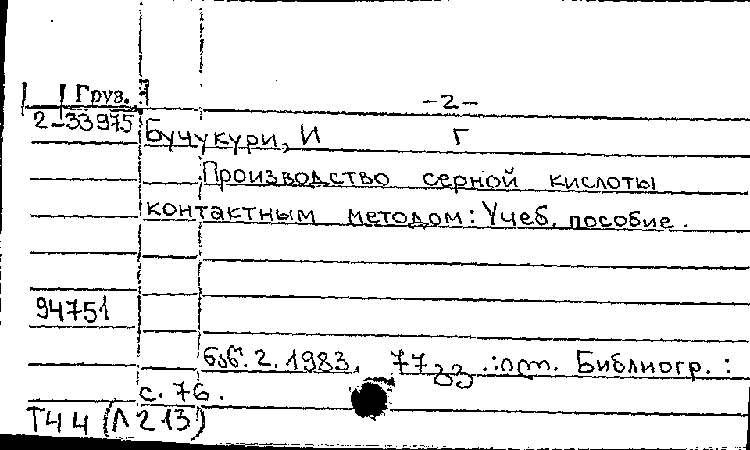 Груз. -2-
2-33975 Бучукури, И Г
Производство серной кислоты
контактным методом: Учеб. пособие.
94751
ნაწ. 2. 1983. 77 გვ. : ილ. Библиогр. :
с. 76.
Т44 (Л213)